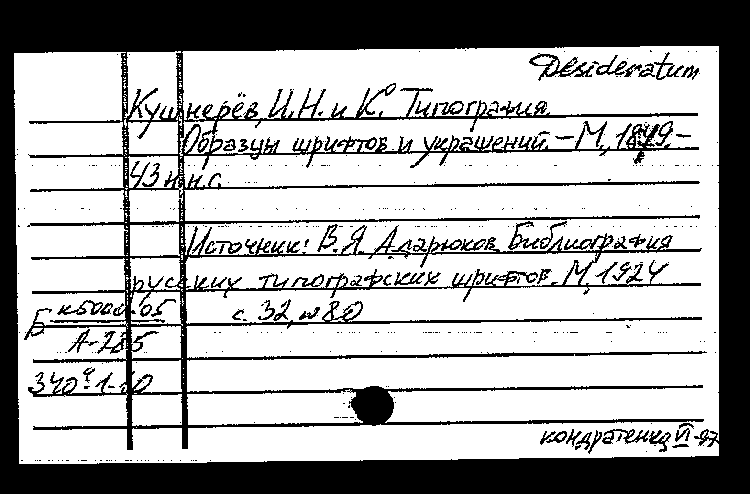 Desideratum
Кушнерёв, И.Н. и К° Типография.
Образцы шрифтов и украшений. – М., –
43 н.н.с.
Источник: В.Я. Адарюков Библиография
русских типографских шрифтов. М, 1924
с. 32, № 80
Б
А-285
кондратенко VI-97